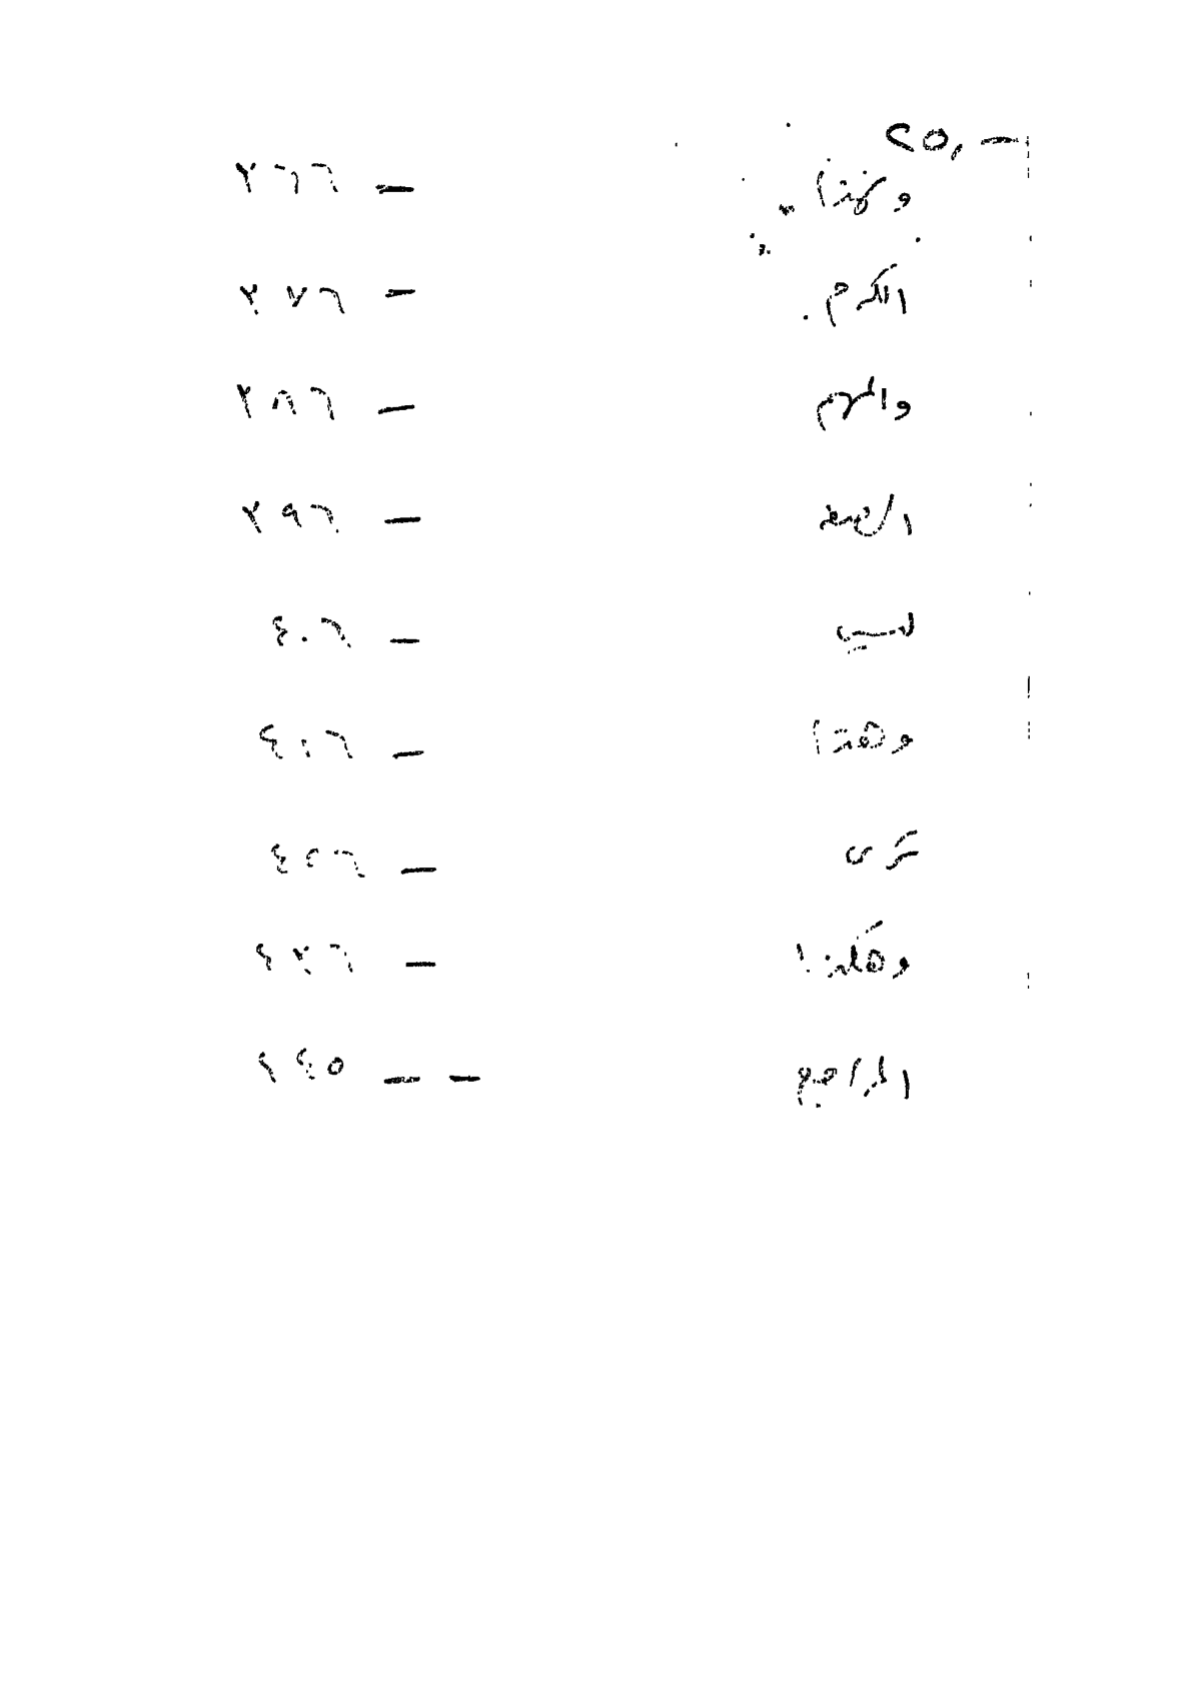 ٢٥٠ —
وهذا — ٢٦٦
الكرم — ٢٧٦
والهرم — ٢٨٦
— ٢٩٦
ليس — ٤٠٦
وهذا — ٤١٦
ترى — ٤٢٦
وهكذا — ٤٣٦
المراجع — — ٤٤٥